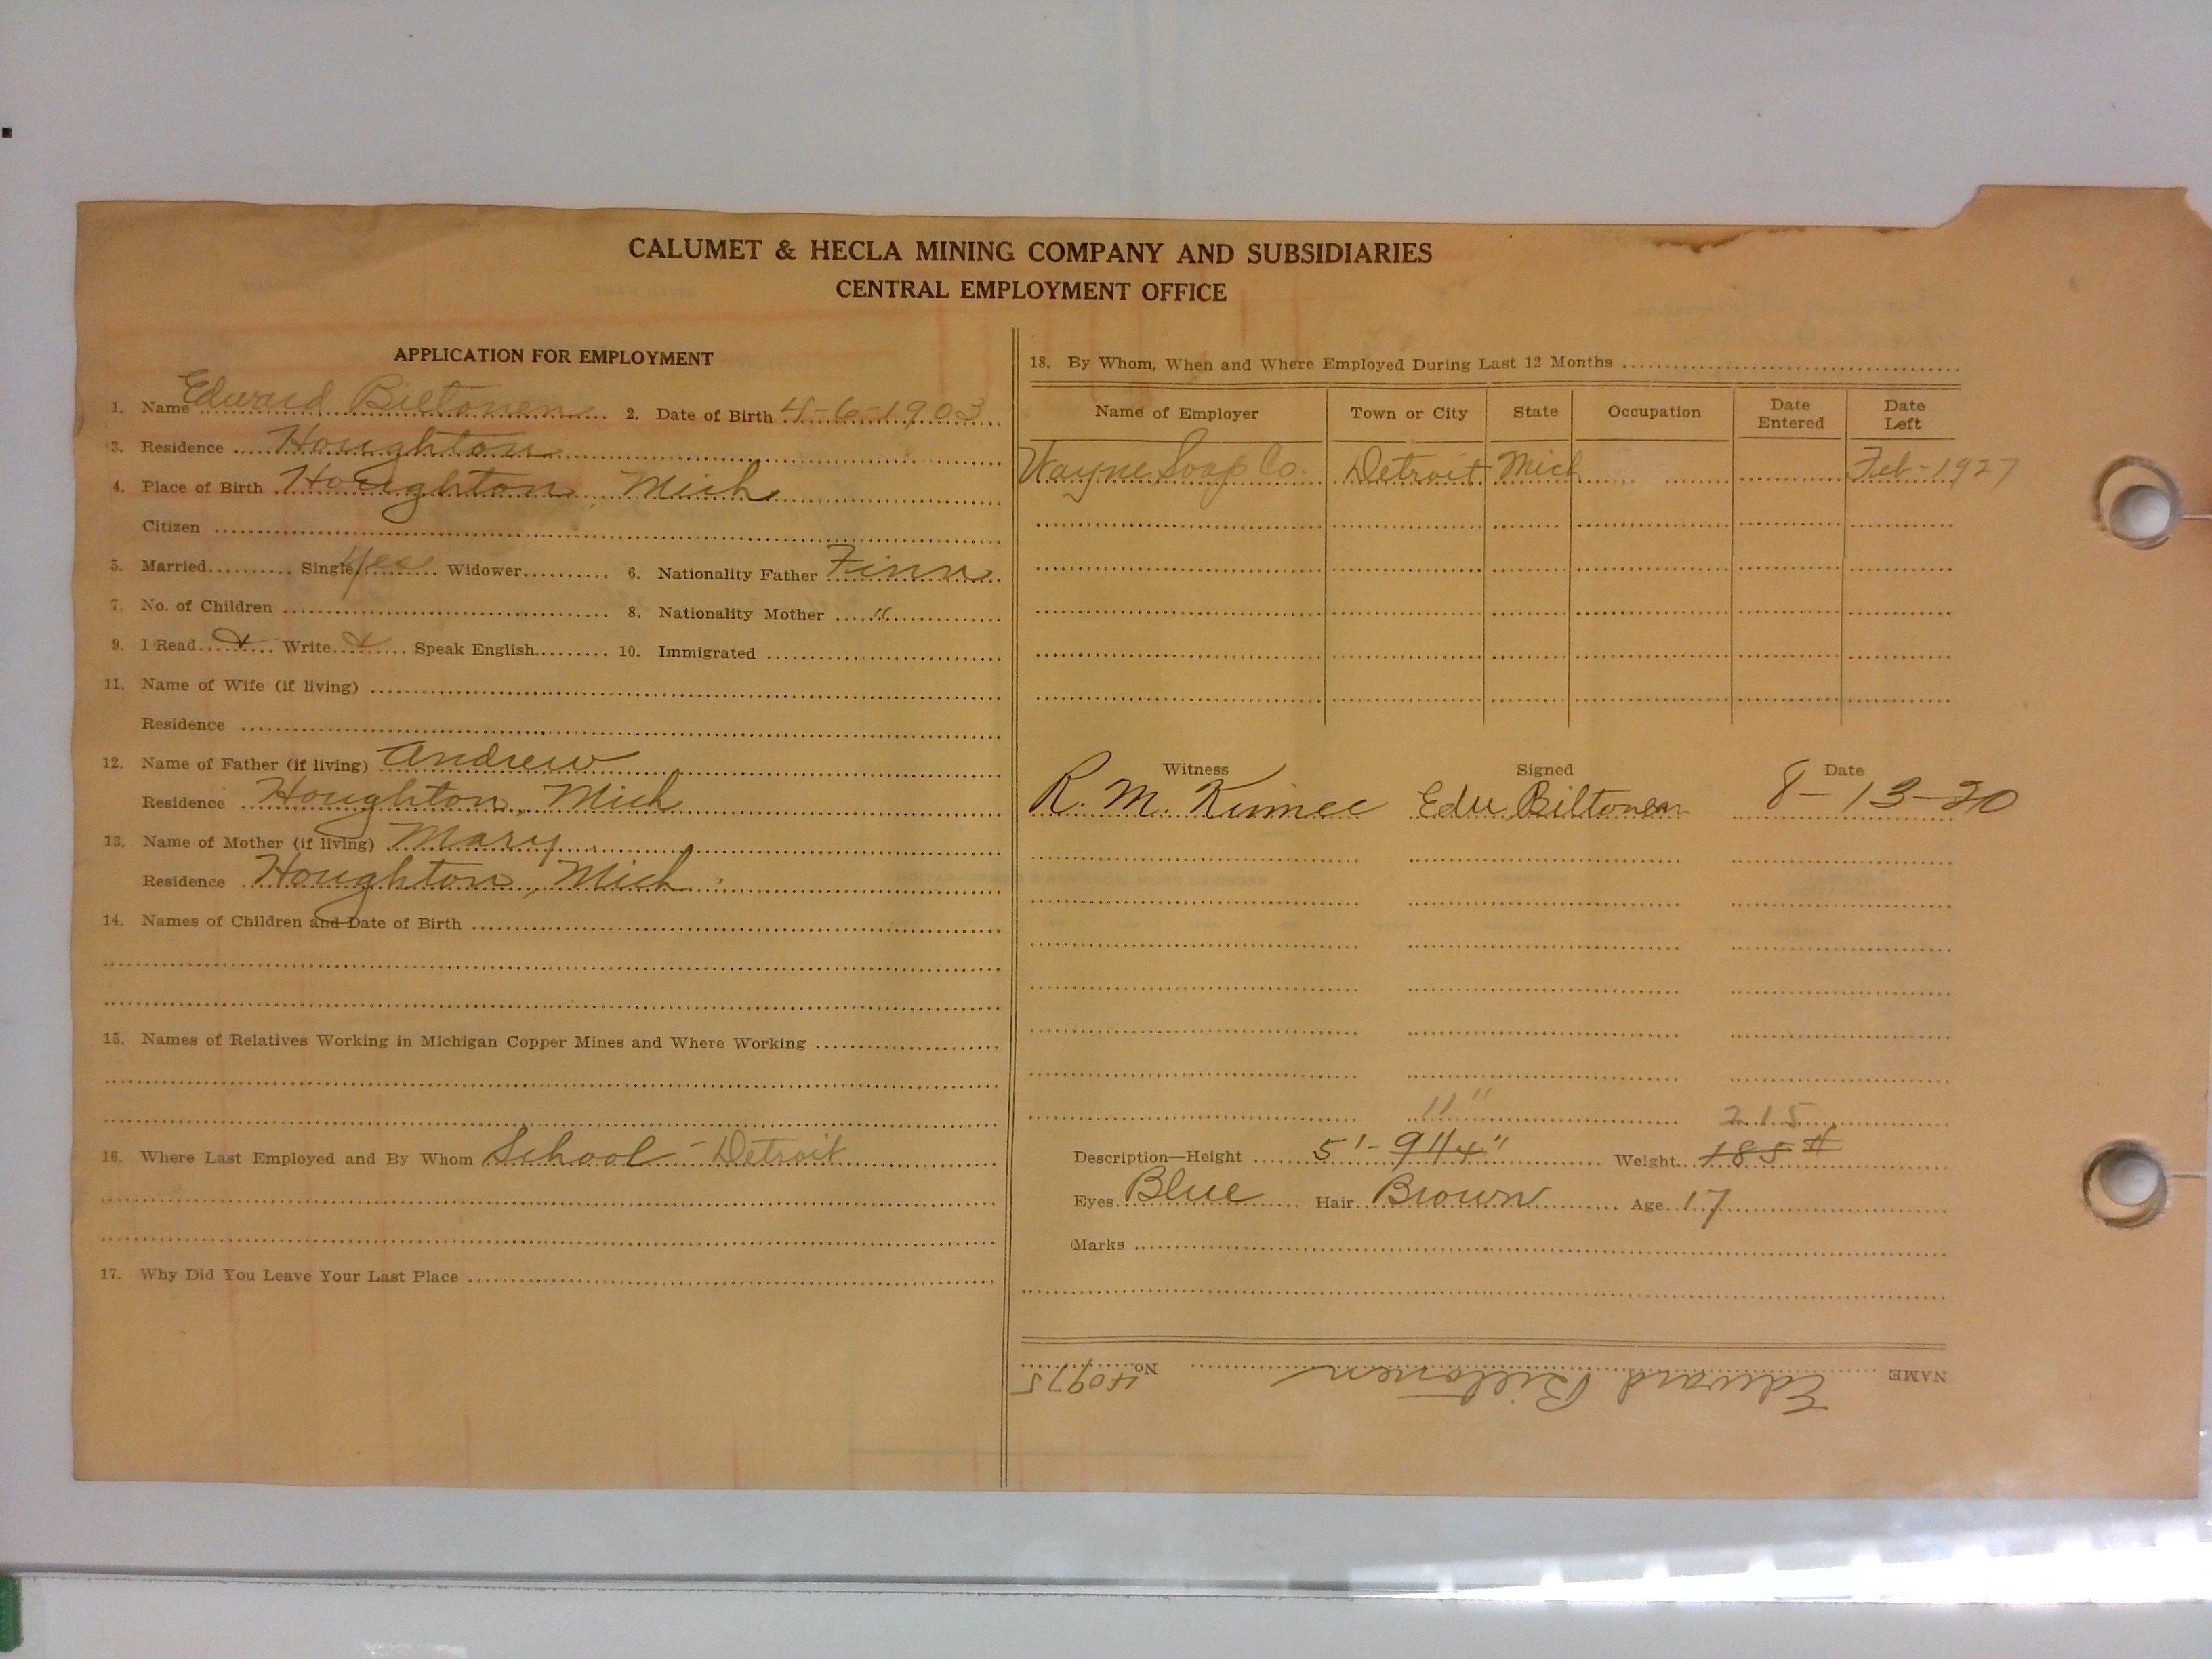 CALUMET & HECLA MINING COMPANY AND SUBSIDIARIES
CENTRAL EMPLOYMENT OFFICE
APPLICATION FOR EMPLOYMENT
1. Name Edward Biltonen 2. Date of Birth 4-6-1903
3. Residence Houghton
4. Place of Birth Houghton, Mich
Citizen
5. Married Single yes Widower 6. Nationality Father Finn
7. No. of Children 8. Nationality Mother "
9. I Read Write Speak English 10. Immigrated
11. Name of Wife (if living)
Residence
12. Name of Father (if living) Andrew
Residence Houghton, Mich
13. Name of Mother (if living) Mary
Residence Houghton, Mich
14. Names of Children and Date of Birth
15. Names of Relatives Working in Michigan Copper Mines and Where Working
16. Where Last Employed and By Whom School - Detroit
17. Why Did You Leave Your Last Place
18. By Whom, When and Where Employed During Last 12 Months
Name of Employer Town or City State Occupation Date Entered Date Left
Wayne Soap Co. Detroit Mich Feb-1927
Witness Signed Date
R. M. Edw Biltonen 8-13-20
11" 215
Description—Height 5'-9 1/4" Weight 185#
Eyes Blue Hair Brown Age 17
Marks
NAME Edward Biltonen No. 40975